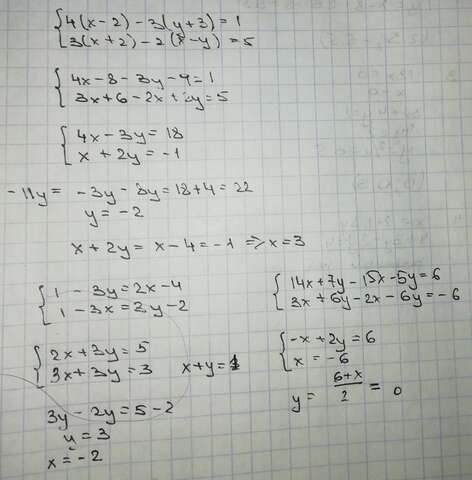 {4(x-2) - 3(y+3) = 1
{3(x+2) - 2(x-y) = 5
{4x - 8 - 3y - 9 = 1
{3x + 6 - 2x + 2y = 5
{4x - 3y = 18
{x + 2y = -1
-11y = -3y - 8y = 18 + 4 = 22
y = -2
x + 2y = x - 4 = -1 => x = 3
{1 - 3y = 2x - 4
{1 - 3x = 3y - 2
{2x + 3y = 5
{3x + 3y = 3 x + y = 1
3y - 2y = 5 - 2
y = 3
x = -2
{14x + 7y - 15x - 5y = 6
{3x + 6y - 2x - 6y = -6
{-x + 2y = 6
{x = -6
y = (6+x)/2 = 0